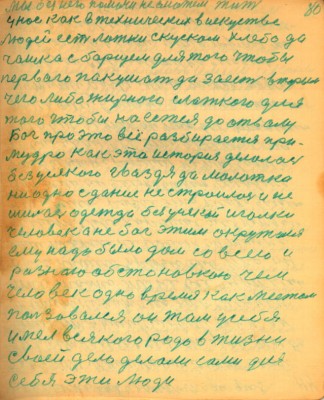 мы бы его помочи не смогли жит 80
у нос как в технических в искуства
людей ест лотки скуском хлеба ди
чашка с борщем для того чтобы
первого пакушат ди заест вторим
чего либо жирного слаткого для
того чтобы насется до отвалу
Бог про это всё разбирается при-
мудро как эта история делолас
без усякого гваздя ди молотка
ни одно сдание не строилос и не
шилас одежда без учкой иголки
человека не бог этим окружил
ему надо было дом со всею и
разною обстоновкою чем
человек одно время как местом
ползовался он там у себя
имел всякого родо в жизни
своей дело делали сами для
себя эти люди